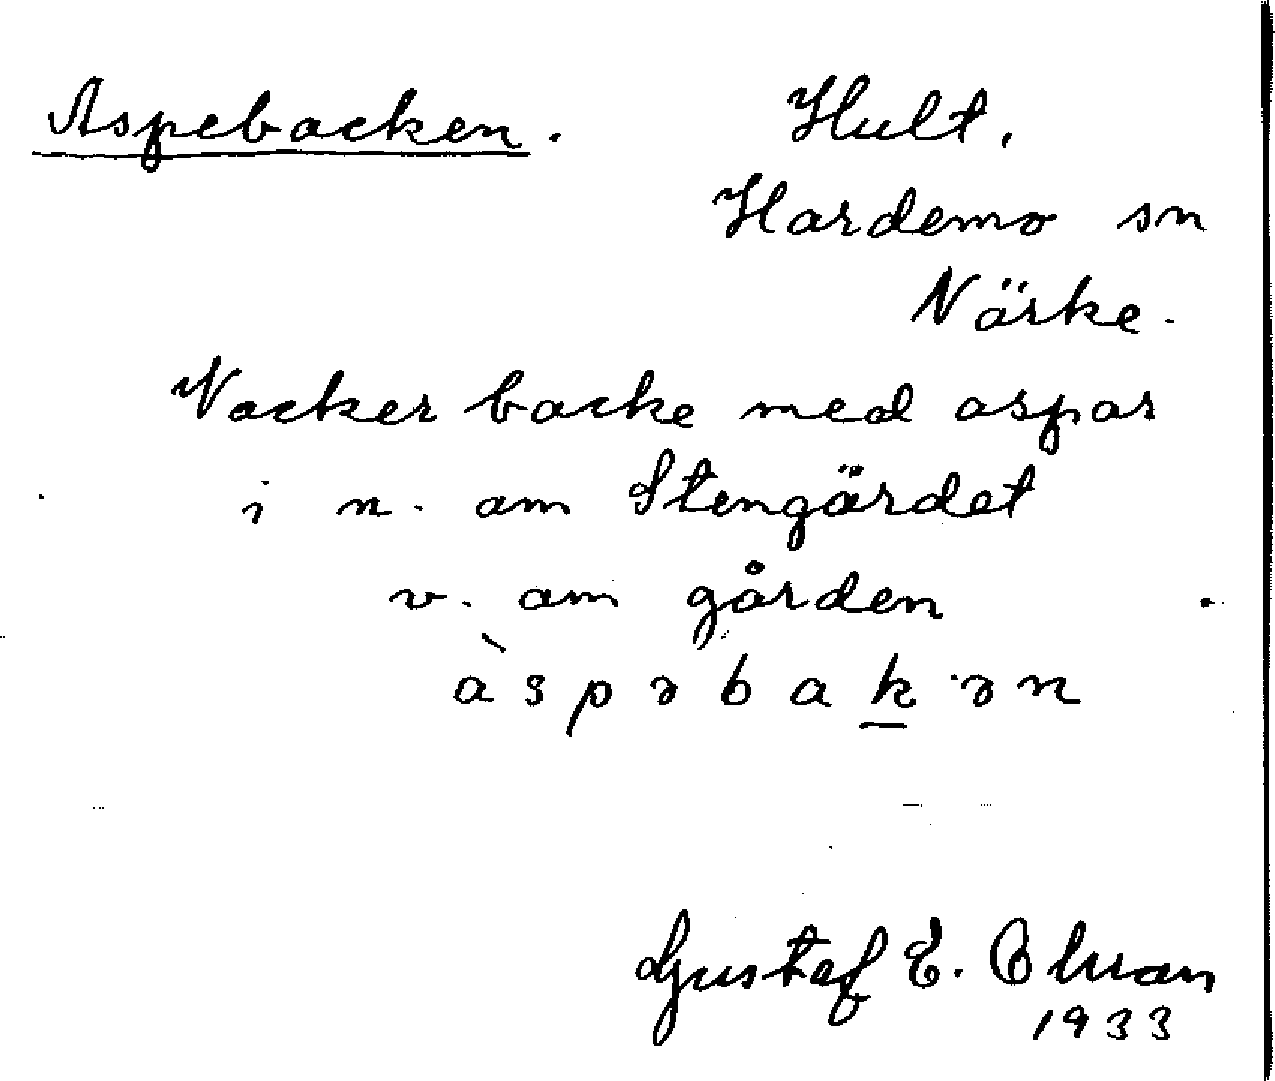 Aspebacken. Hult.
Hardemo sn
Närke.
Vacker backe med aspar
i n. om Stengärdet
v. om gården
àspəbak·ən
Gustaf E.
1933